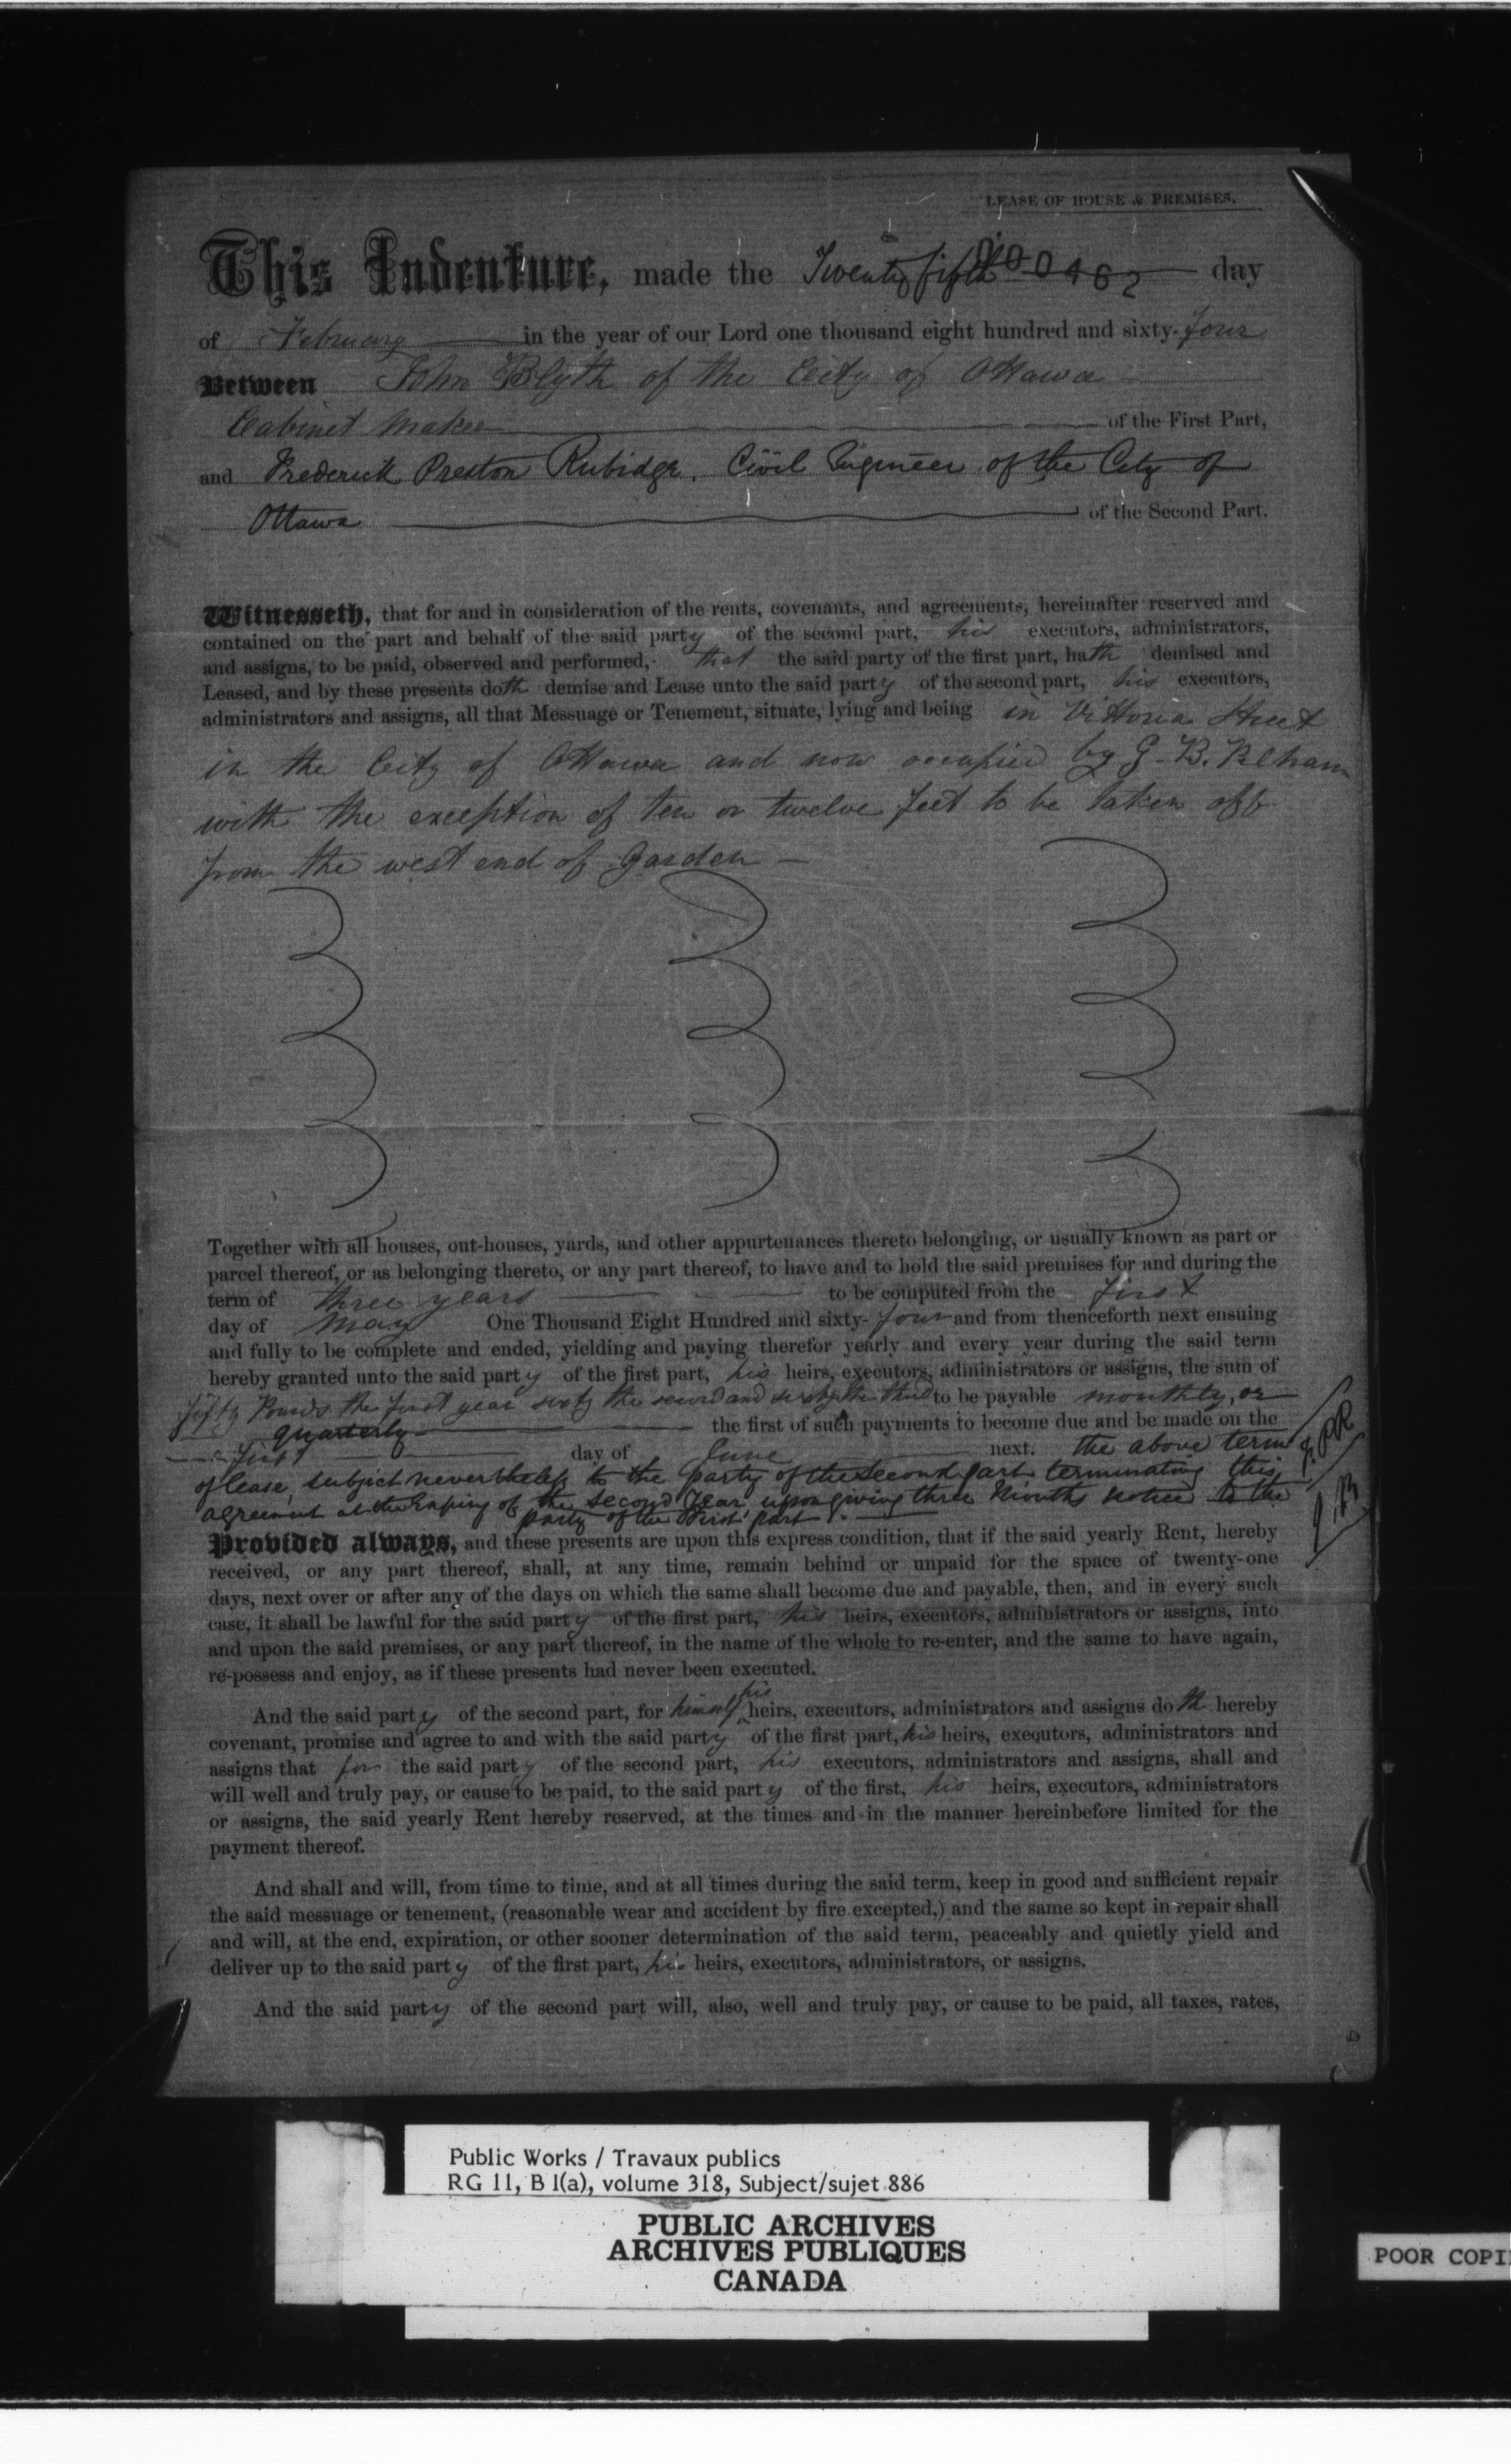 LEASE OF HOUSE & PREMISES.
This Indenture, made the Twenty fifth day
000462
of February in the year of our Lord one thousand eight hundred and sixty-four
Between John Blyth of the City of Ottawa
Cabinet Maker of the First Part,
and Frederick Preston Rubidge. Civil Engineer of the City of
Ottawa of the Second Part.
Witnesseth, that for and in consideration of the rents, covenants, and agreements, hereinafter reserved and
contained on the part and behalf of the said party of the second part, his executors, administrators,
and assigns, to be paid, observed and performed, that the said party of the first part, hath demised and
Leased, and by these presents doth demise and Lease unto the said party of the second part, his executors,
administrators and assigns, all that Messuage or Tenement, situate, lying and being in Vittoria Street
in the City of Ottawa and now occupied by G. B. Pelham
with the exception of ten or twelve feet to be taken off
from the west end of Garden
Together with all houses, out-houses, yards, and other appurtenances thereto belonging, or usually known as part or
parcel thereof, or as belonging thereto, or any part thereof, to have and to hold the said premises for and during the
term of three years to be computed from the first
day of May One Thousand Eight Hundred and sixty-four and from thenceforth next ensuing
and fully to be complete and ended, yielding and paying therefor yearly and every year during the said term
hereby granted unto the said party of the first part, his heirs, executors, administrators or assigns, the sum of
fifty Pounds the first year sixty the second and sixty the third to be payable monthly, or
quarterly the first of such payments to become due and be made on the
First day of June next. the above term
of lease, subject nevertheless to the party of the Second part terminating this
agreement at the Expiry of the Second Year, upon giving three Months notice to the
party of the First part.
F.P.R
J B
Provided always, and these presents are upon this express condition, that if the said yearly Rent, hereby
received, or any part thereof, shall, at any time, remain behind or unpaid for the space of twenty-one
days, next over or after any of the days on which the same shall become due and payable, then, and in every such
case, it shall be lawful for the said party of the first part, his heirs, executors, administrators or assigns, into
and upon the said premises, or any part thereof, in the name of the whole to re-enter, and the same to have again,
re-possess and enjoy, as if these presents had never been executed.
And the said party of the second part, for himself his heirs, executors, administrators and assigns doth hereby
covenant, promise and agree to and with the said party of the first part, his heirs, executors, administrators and
assigns that for the said party of the second part, his executors, administrators and assigns, shall and
will well and truly pay, or cause to be paid, to the said party of the first, his heirs, executors, administrators
or assigns, the said yearly Rent hereby reserved, at the times and in the manner hereinbefore limited for the
payment thereof.
And shall and will, from time to time, and at all times during the said term, keep in good and sufficient repair
the said messuage or tenement, (reasonable wear and accident by fire excepted,) and the same so kept in repair shall
and will, at the end, expiration, or other sooner determination of the said term, peaceably and quietly yield and
deliver up to the said party of the first part, his heirs, executors, administrators, or assigns.
And the said party of the second part will, also, well and truly pay, or cause to be paid, all taxes, rates,
Public Works / Travaux publics
RG 11, B 1(a), volume 318, Subject/sujet 886
PUBLIC ARCHIVES
ARCHIVES PUBLIQUES
CANADA
POOR COPI